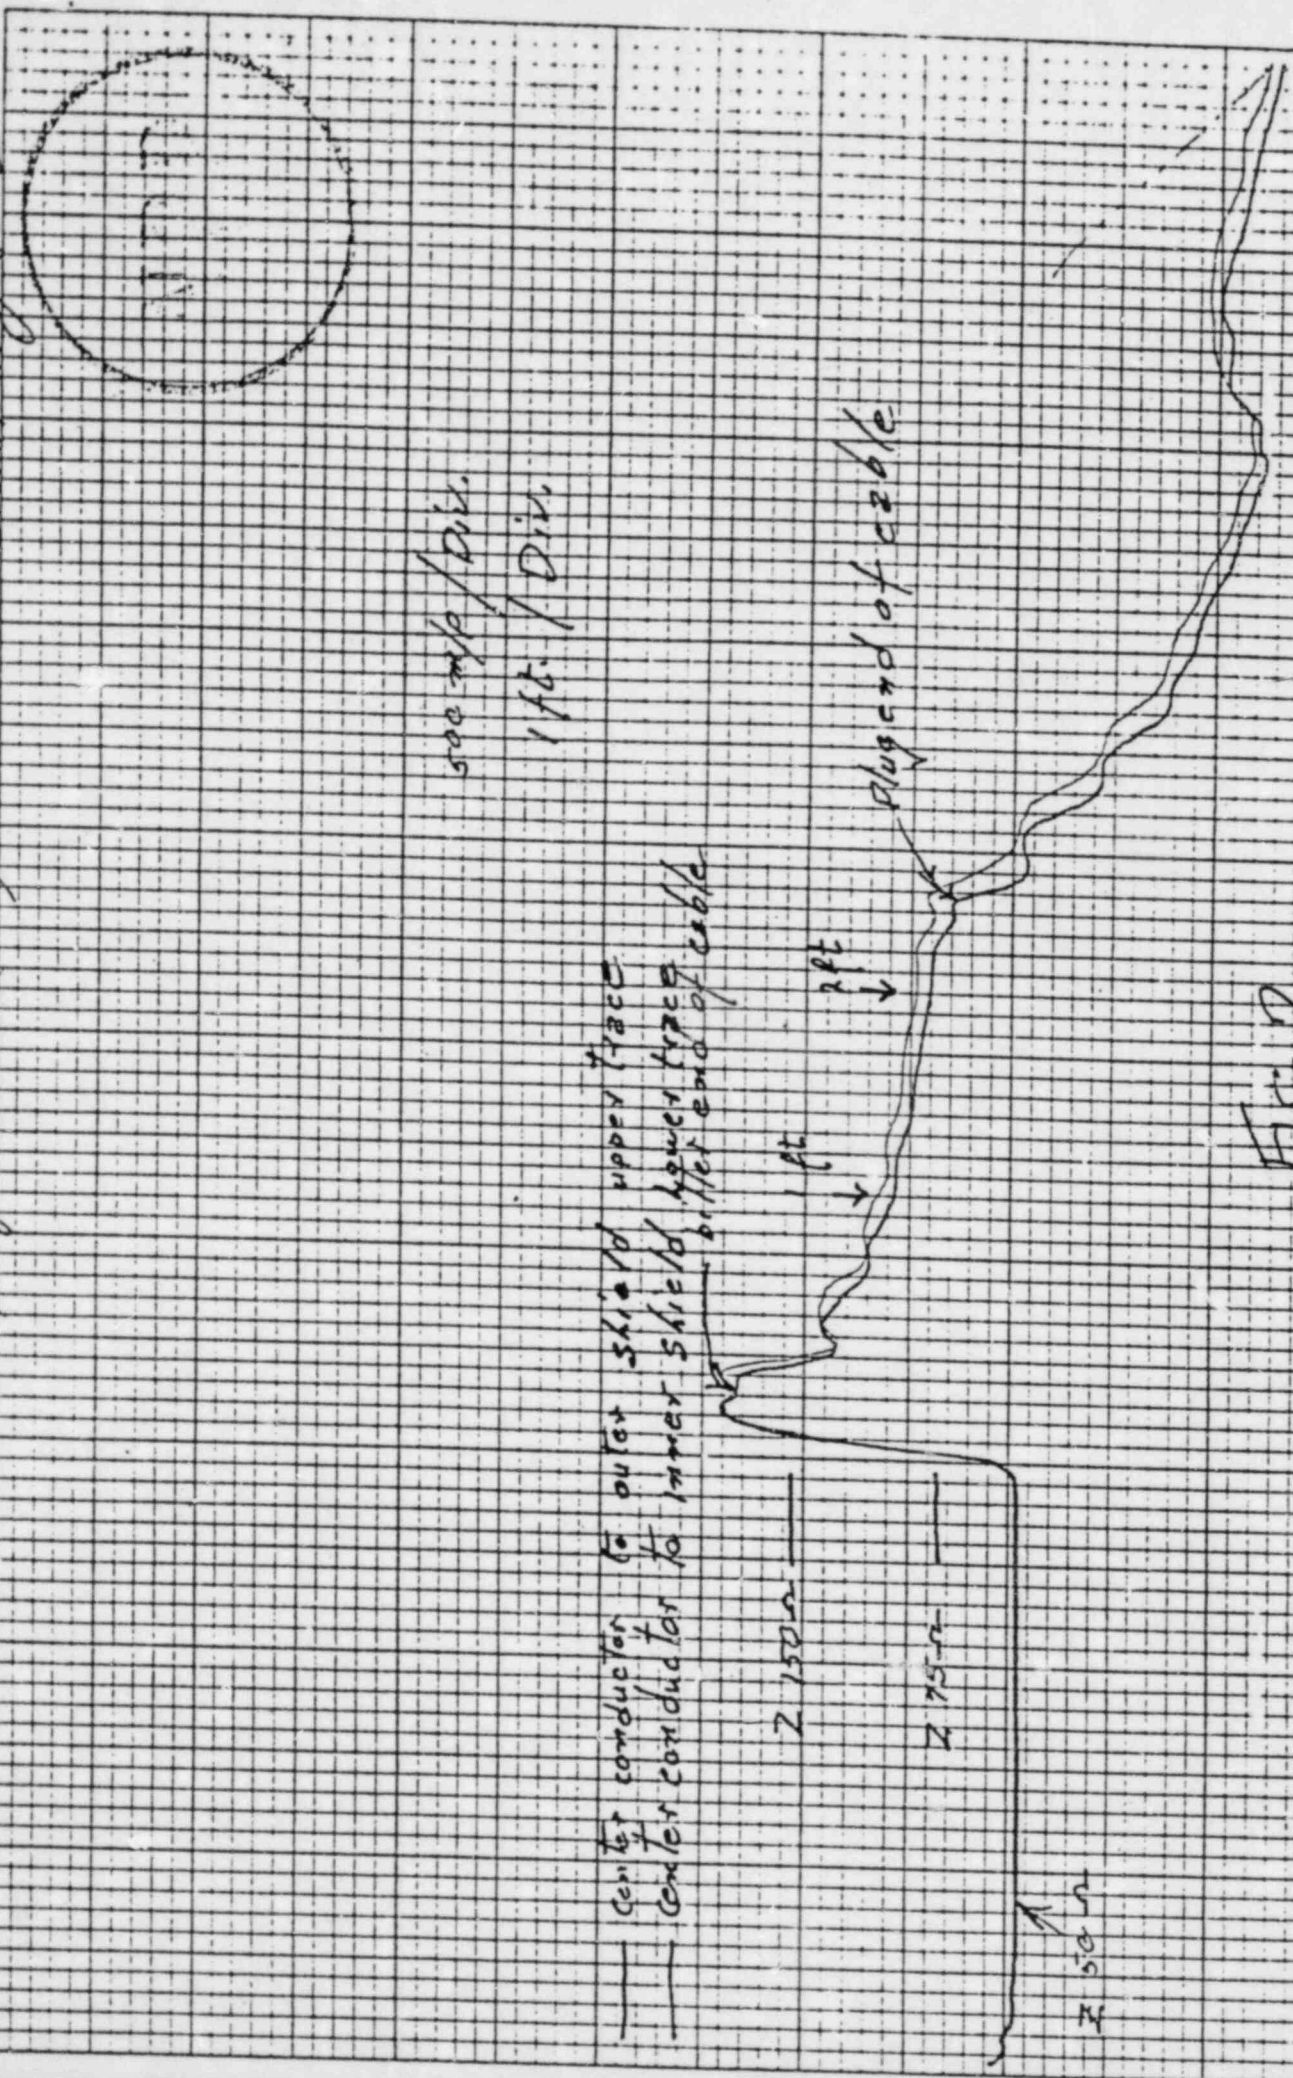 500 m/p / Div.
1 ft. / Div.
center conductor to outer shield upper trace
center conductor to inner shield lower trace
billet end of cable
1 ft
2 ft
plug end of cable
Z 150 Ω
Z 75 Ω
Z 50 Ω